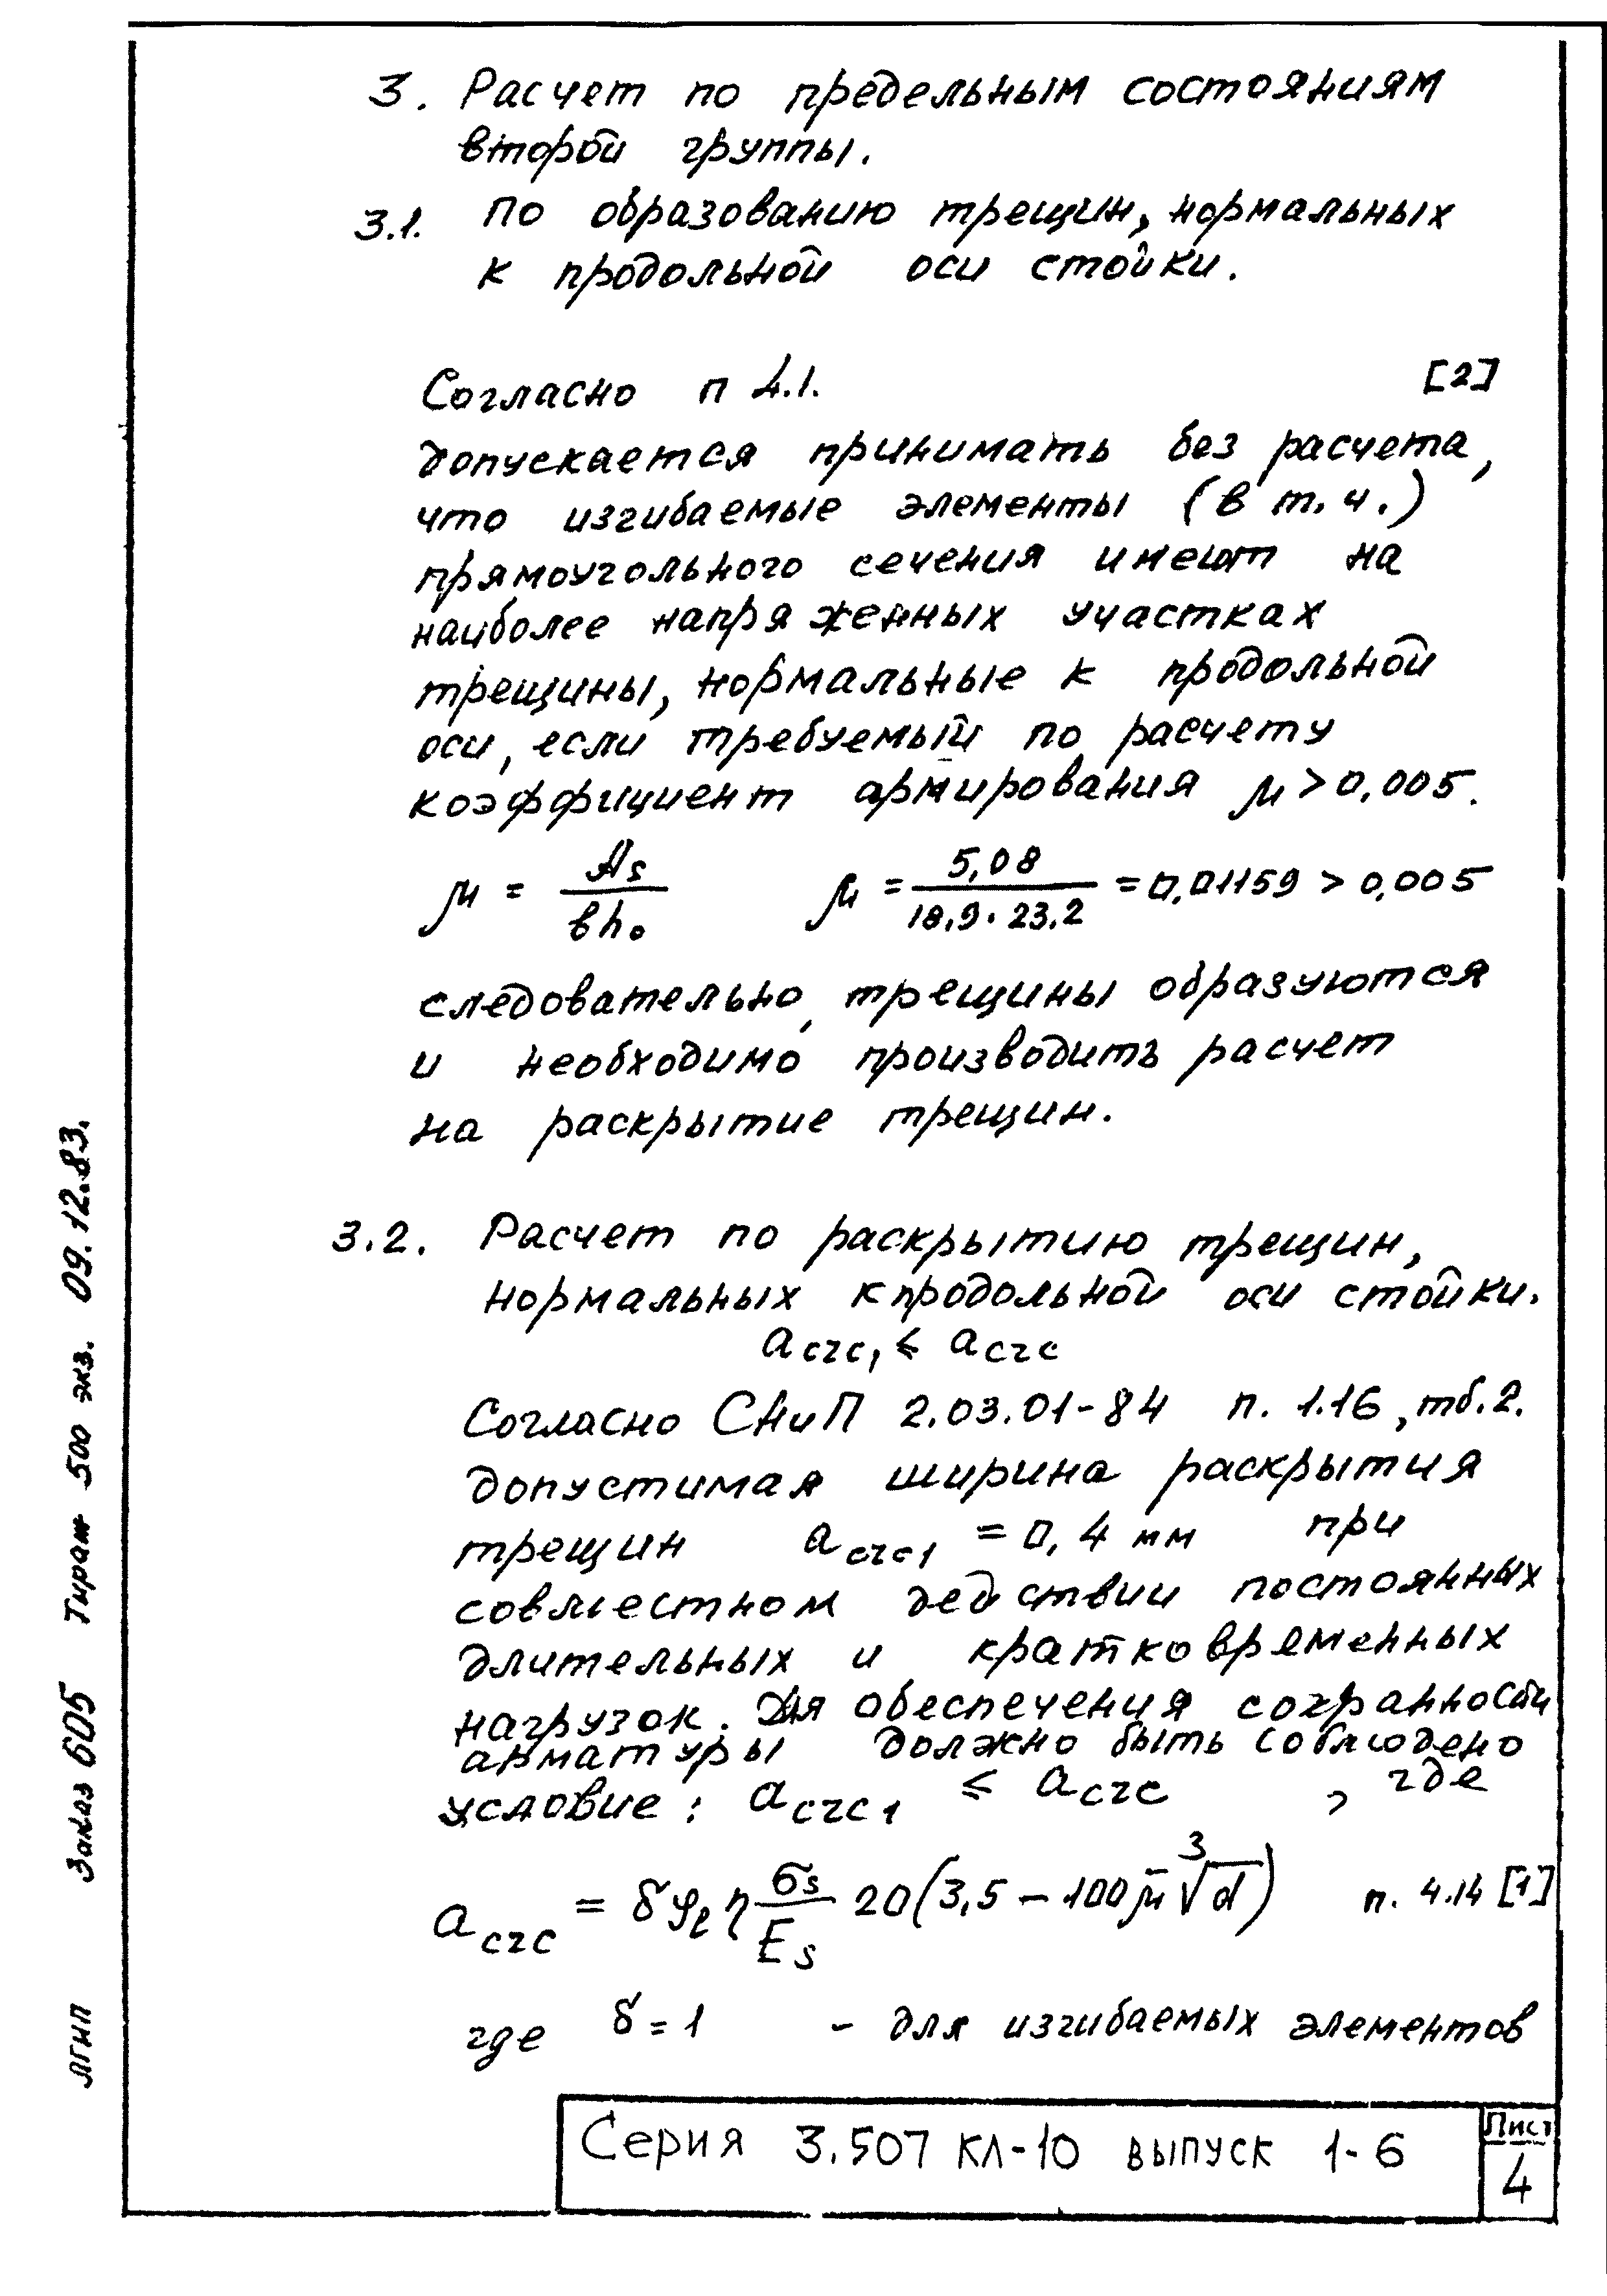 3. Расчет по предельным состояниям
второй группы.
3.1. По образованию трещин, нормальных
к продольной оси стойки.
Согласно п 4.1. [2]
допускается принимать без расчета,
что изгибаемые элементы (в т.ч.)
прямоугольного сечения имеют на
наиболее напряженных участках
трещины, нормальные к продольной
оси, если требуемый по расчету
коэффициент армирования μ > 0,005.
μ = As / bh₀ μ = 5,08 / 18,9·23,2 = 0,01159 > 0,005
следовательно, трещины образуются
и необходимо производить расчет
на раскрытие трещин.
3.2. Расчет по раскрытию трещин,
нормальных к продольной оси стойки.
acrc1 ≤ acrc
Согласно СНиП 2.03.01-84 п. 1.16, тб.2.
допустимая ширина раскрытия
трещин acrc1 = 0,4 мм при
совместном действии постоянных
длительных и кратковременных
нагрузок. Для обеспечения сохранности
арматуры должно быть соблюдено
условие: acrc1 ≤ acrc, где
acrc = δ φl η σs/Es 20(3,5 - 100 μ ∛d) п. 4.14 [1]
где δ = 1 - для изгибаемых элементов
Серия 3.507 КЛ-10 выпуск 1-6
Лист
4
ЛГНП Заказ 605 Тираж 500 экз. 09.12.83.